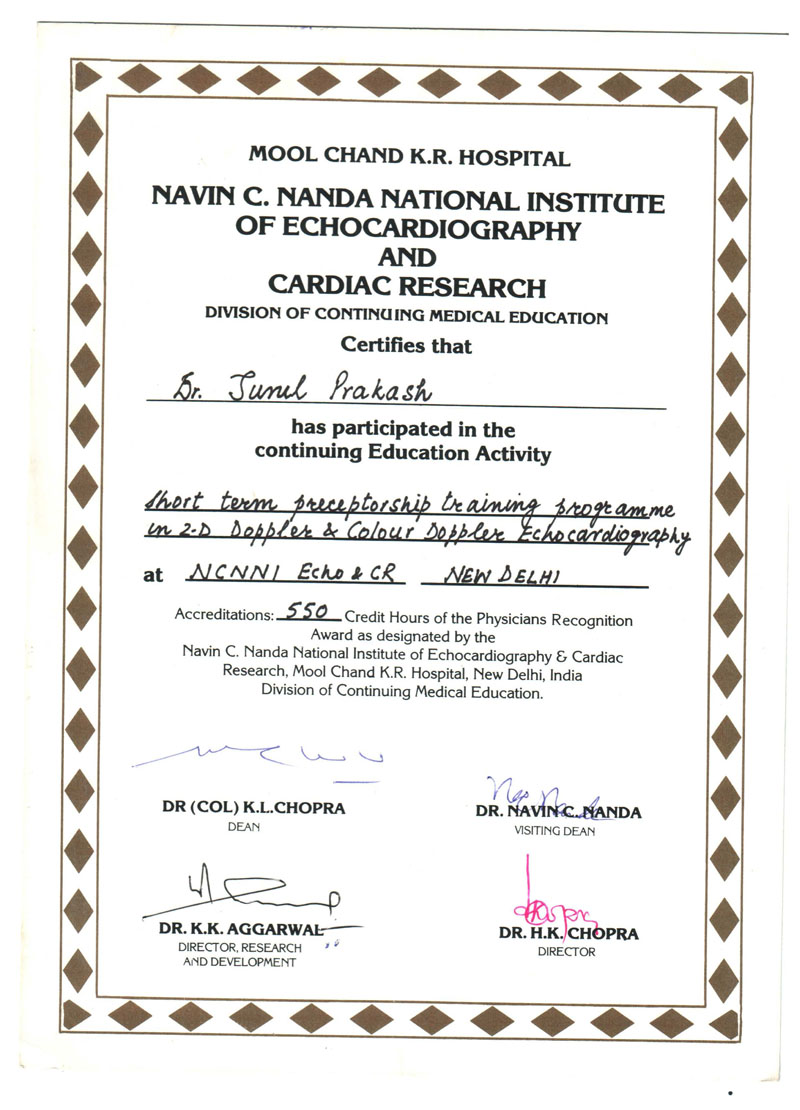 MOOL CHAND K.R. HOSPITAL
NAVIN C. NANDA NATIONAL INSTITUTE
OF ECHOCARDIOGRAPHY
AND
CARDIAC RESEARCH
DIVISION OF CONTINUING MEDICAL EDUCATION
Certifies that
Dr. Sunil Prakash
has participated in the
continuing Education Activity
Short term preceptorship training programme
in 2-D Doppler & Colour Doppler Echocardiography
at NCNNI Echo & CR NEW DELHI
Accreditations: 550 Credit Hours of the Physicians Recognition
Award as designated by the
Navin C. Nanda National Institute of Echocardiography & Cardiac
Research, Mool Chand K.R. Hospital, New Delhi, India
Division of Continuing Medical Education.
DR (COL) K.L.CHOPRA
DEAN
DR. NAVIN C. NANDA
VISITING DEAN
DR. K.K. AGGARWAL
DIRECTOR, RESEARCH
AND DEVELOPMENT
DR. H.K. CHOPRA
DIRECTOR